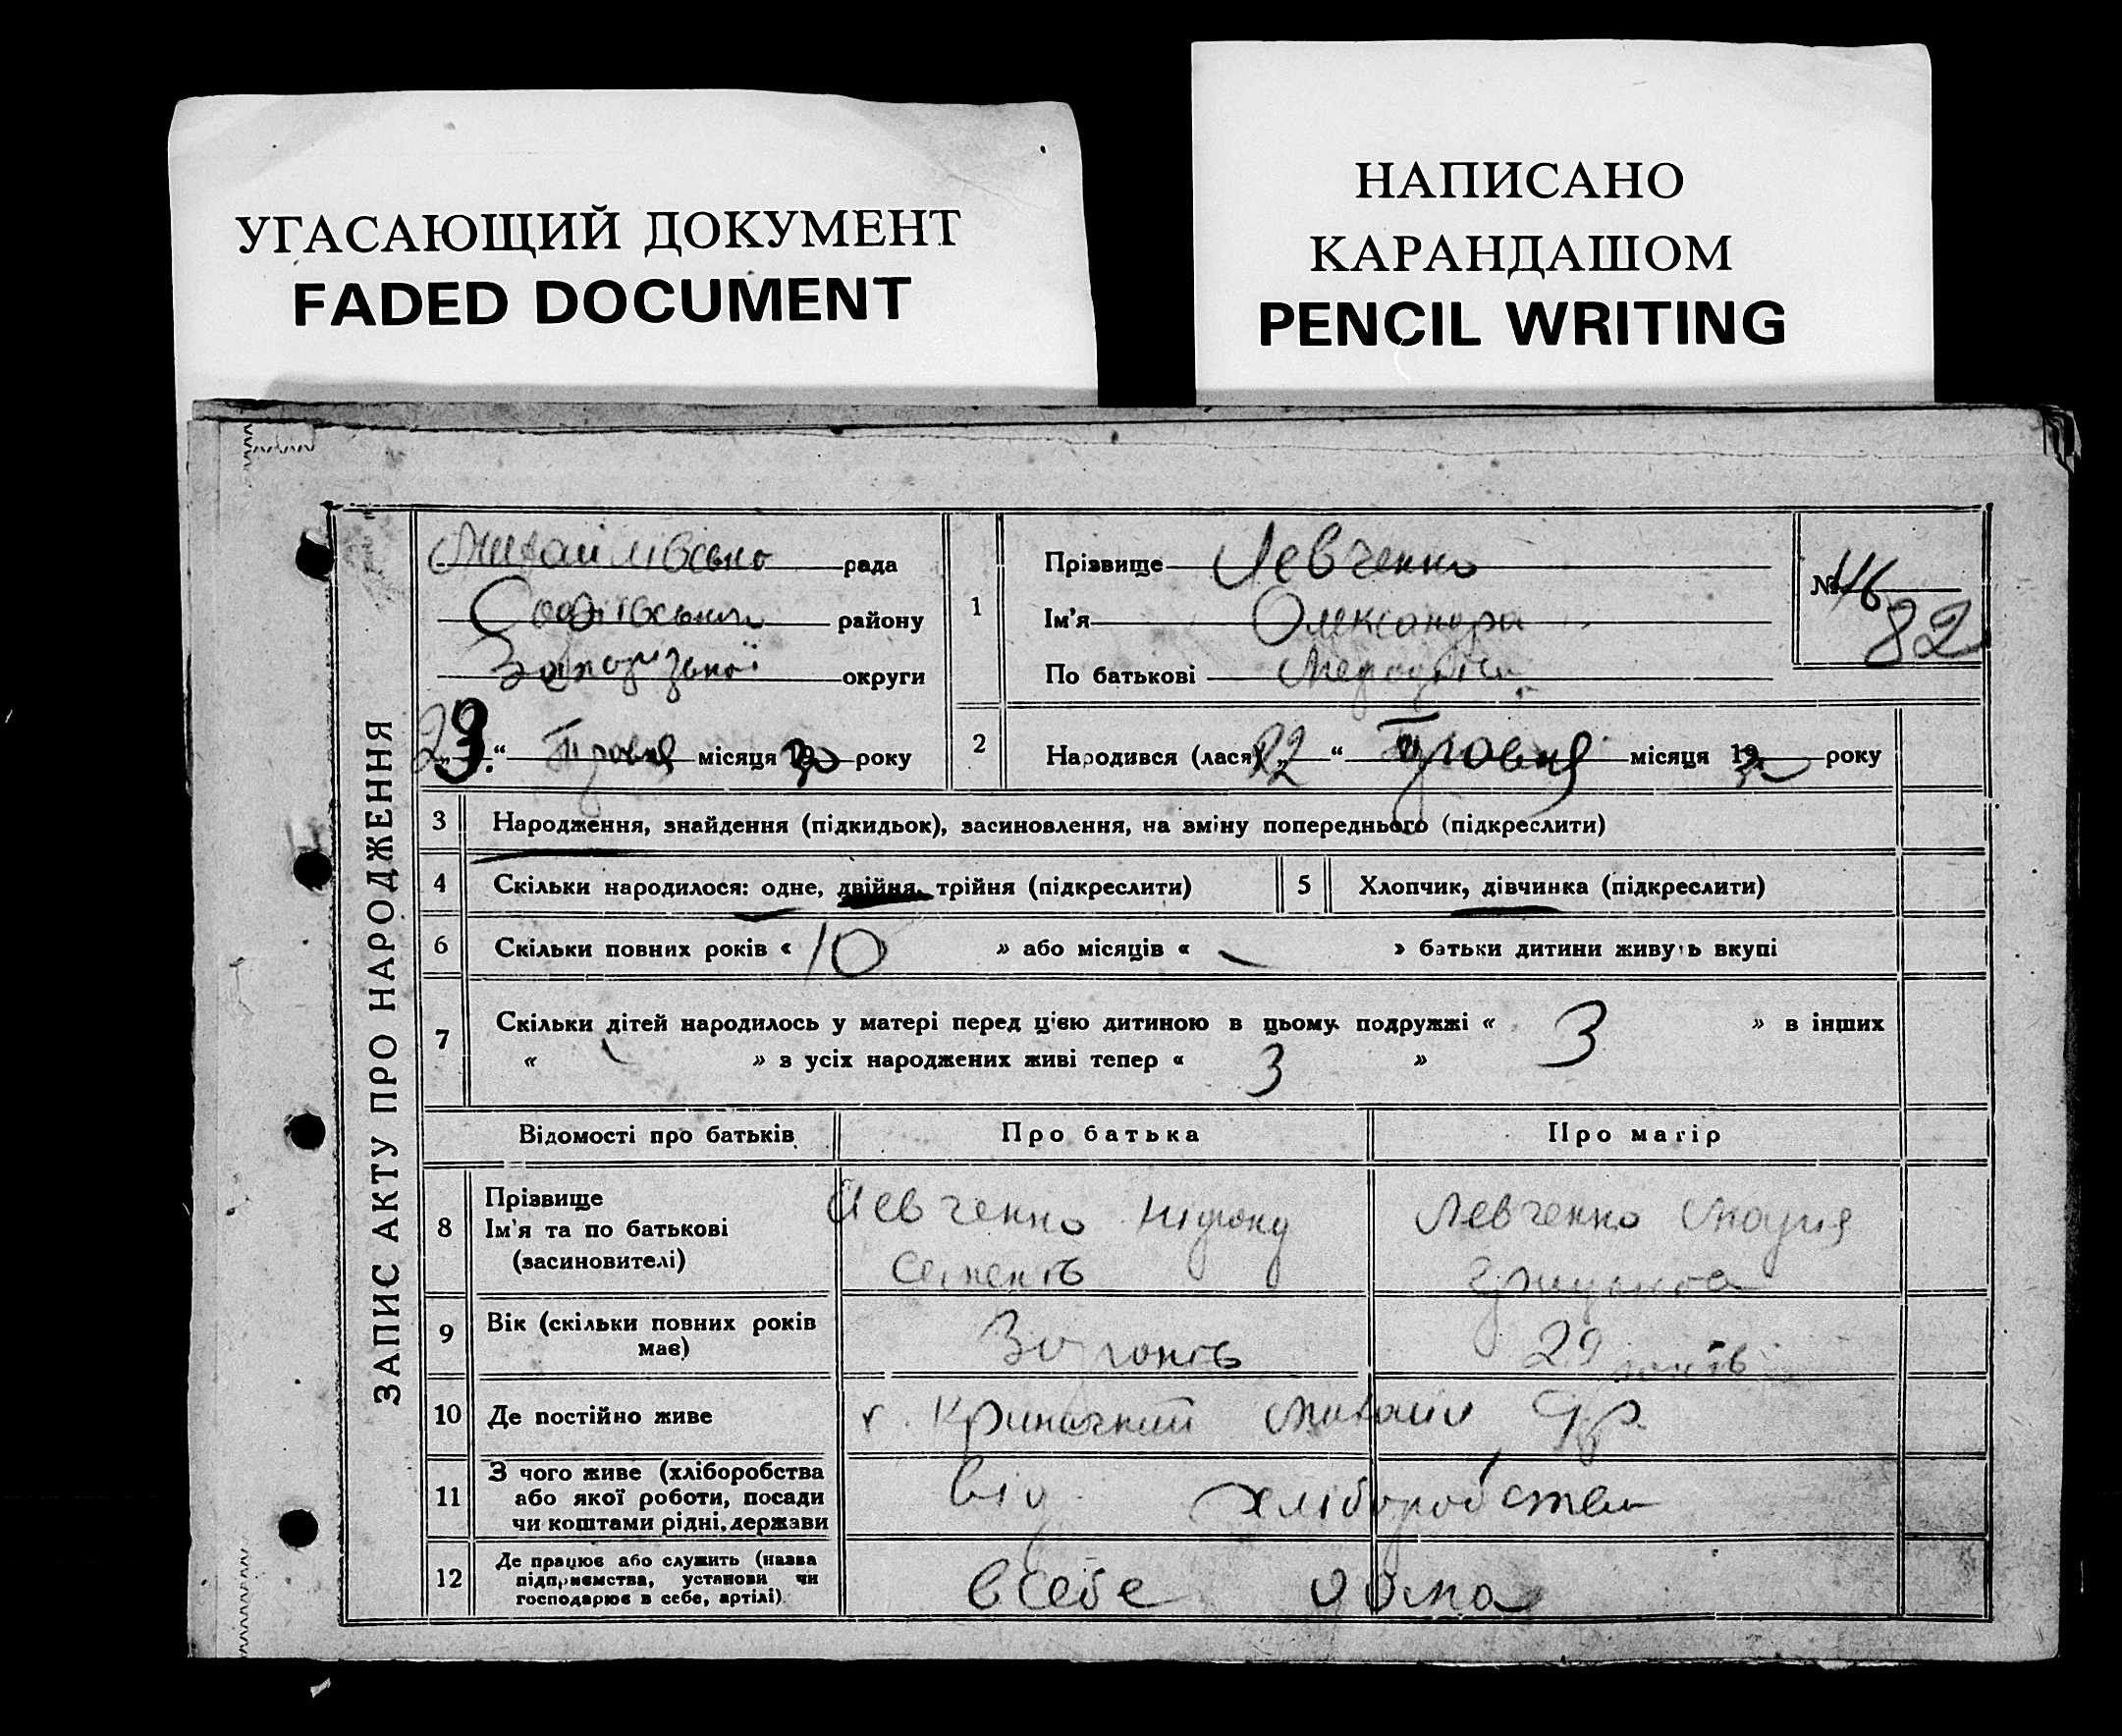 УГАСАЮЩИЙ ДОКУМЕНТ
FADED DOCUMENT
НАПИСАНО
КАРАНДАШОМ
PENCIL WRITING
ЗАПИС АКТУ ПРО НАРОДЖЕННЯ
Михайлівсько рада
Софіївський району
Запорізької округи
„23“ Травня місяця 30 року
1
Прізвище Левченко
Ім'я Олександра
По батькові
№ 116
82
2
Народився (лася) „22“ Травня місяця 1930 року
3 Народження, знайдення (підкидьок), засиновлення, на зміну попереднього (підкреслити)
4 Скільки народилося: одне, двійня, трійня (підкреслити)
5 Хлопчик, дівчинка (підкреслити)
6 Скільки повних років « 10 » або місяців « — » батьки дитини живуть вкупі
7 Скільки дітей народилось у матері перед цією дитиною в цьому подружжі « 3 » в інших
« — » в усіх народжених живі тепер « 3 »
Відомості про батьків Про батька Про матір
8 Прізвище
Ім'я та по батькові
(засиновителі)
Левченко
Семенів
Левченко Мария
9 Вік (скільки повних років
має)
років
29 років
10 Де постійно живе
х. Криничний Михайл
11 З чого живе (хліборобства
або якої роботи, посади
чи коштами рідні, держави
від хліборобства
12 Де працює або служить (назва
підприємства, установи чи
господарює в себе, артілі)
в себе дома